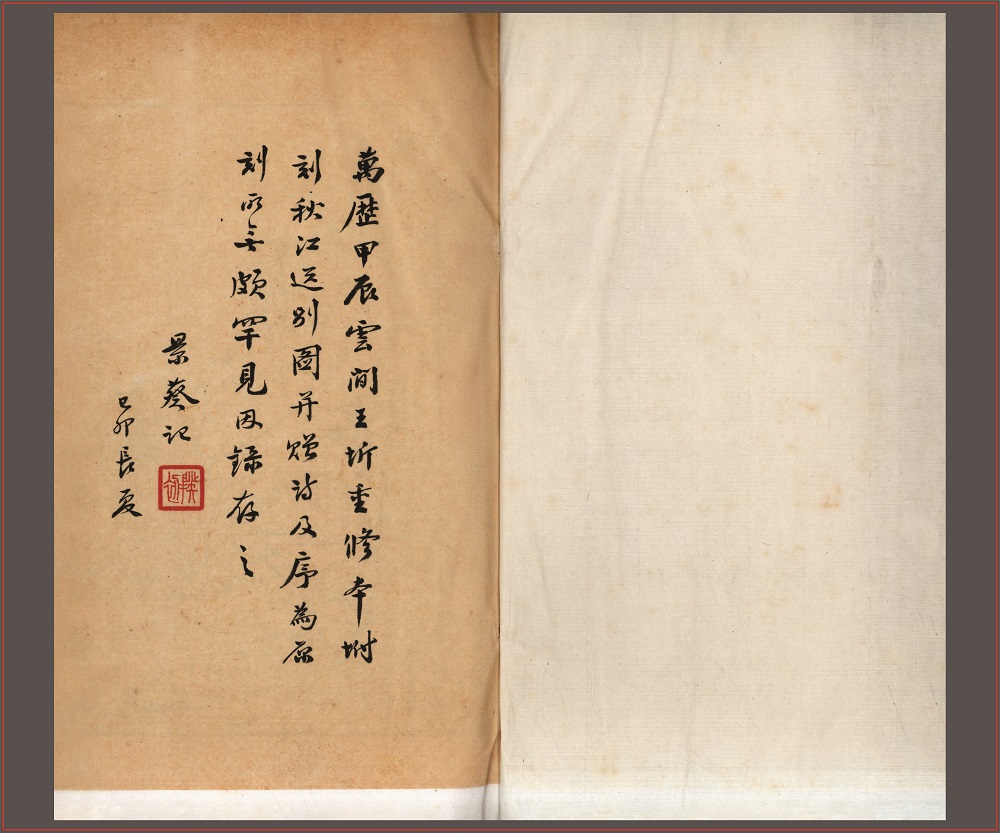 萬歷甲辰雲間王圻重修本坿
刻秋江送別圖并贈詩及序為原
刻所無頗罕見因錄存之
景葵記
己卯長夏